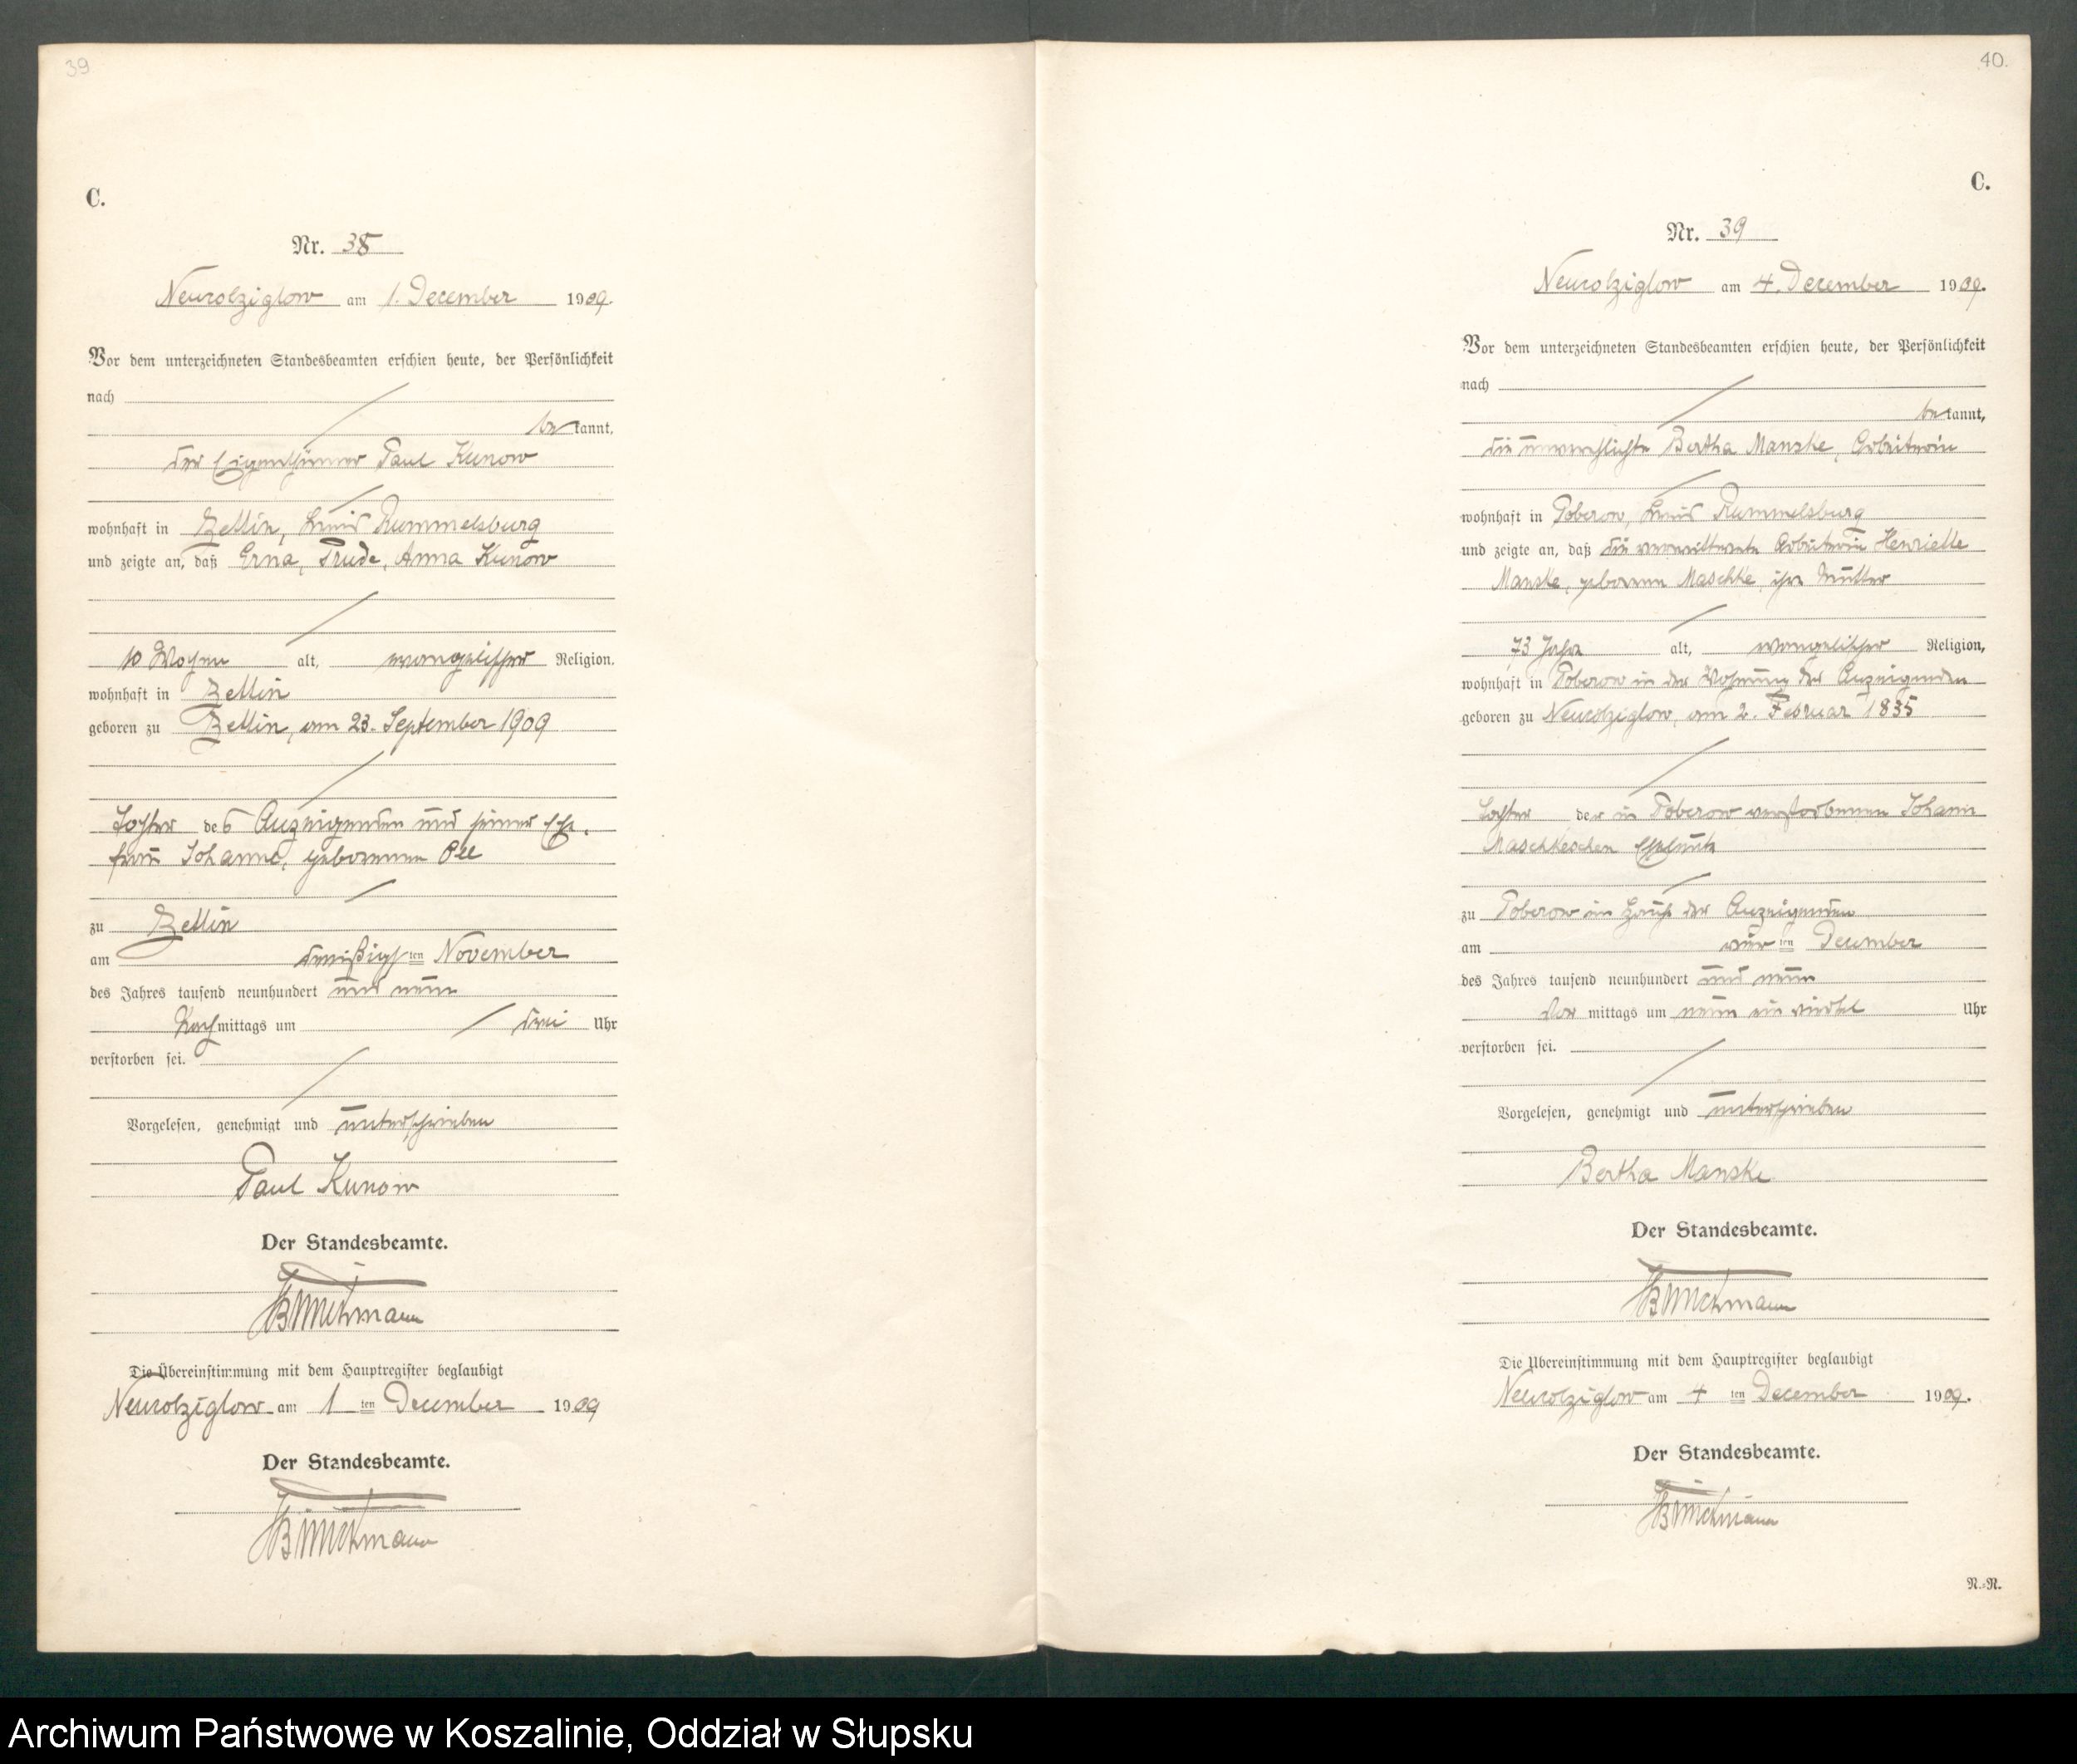 39
C.
Nr. 38
Neukolziglow am 1. December 1909.
Vor dem unterzeichneten Standesbeamten erschien heute, der Persönlichkeit
nach
be kannt,
der Eigenthümer Paul Kunow
wohnhaft in Zettin, Kreis Rummelsburg
und zeigte an, daß Erna, Trude, Anna Kunow
10 Wochen alt, evangelischer Religion.
wohnhaft in Zettin
geboren zu Zettin, am 23. September 1909
Tochter des Anzeigenden und seiner Ehe-
frau Johanne, geborenen
zu Zettin
am dreißigsten November
des Jahres tausend neunhundert und neun
Nachmittags um drei Uhr
verstorben sei.
Vorgelesen, genehmigt und unterschrieben
Paul Kunow
Der Standesbeamte.
Die Übereinstimmung mit dem Hauptregister beglaubigt
Neukolziglow am 1 ten December 1909
Der Standesbeamte.
40.
C.
Nr. 39
Neukolziglow am 4. December 1909.
Vor dem unterzeichneten Standesbeamten erschien heute, der Persönlichkeit
nach
be kannt,
die unverehlichte Bertha Manske, Arbeiterin
wohnhaft in Poberow, Kreis Rummelsburg
und zeigte an, daß die verwittwete Arbeiterin Henriette
Manske, geborene Maschke, ihre Mutter
73 Jahre alt, evangelischer Religion,
wohnhaft in Poberow in der Wohnung der Anzeigenden
geboren zu Neukolziglow, am 2. Februar 1835
Tochter der in Poberow verstorbenen Johann
Maschkeschen Eheleute
zu Poberow im Hause der Anzeigenden
am vier ten December
des Jahres tausend neunhundert und neun
Vor mittags um neun ein viertel Uhr
verstorben sei.
Vorgelesen, genehmigt und unterschrieben
Bertha Manske
Der Standesbeamte.
Die Übereinstimmung mit dem Hauptregister beglaubigt
Neukolziglow am 4 ten December 1909.
Der Standesbeamte.
N.-N.
Archiwum Państwowe w Koszalinie, Oddział w Słupsku